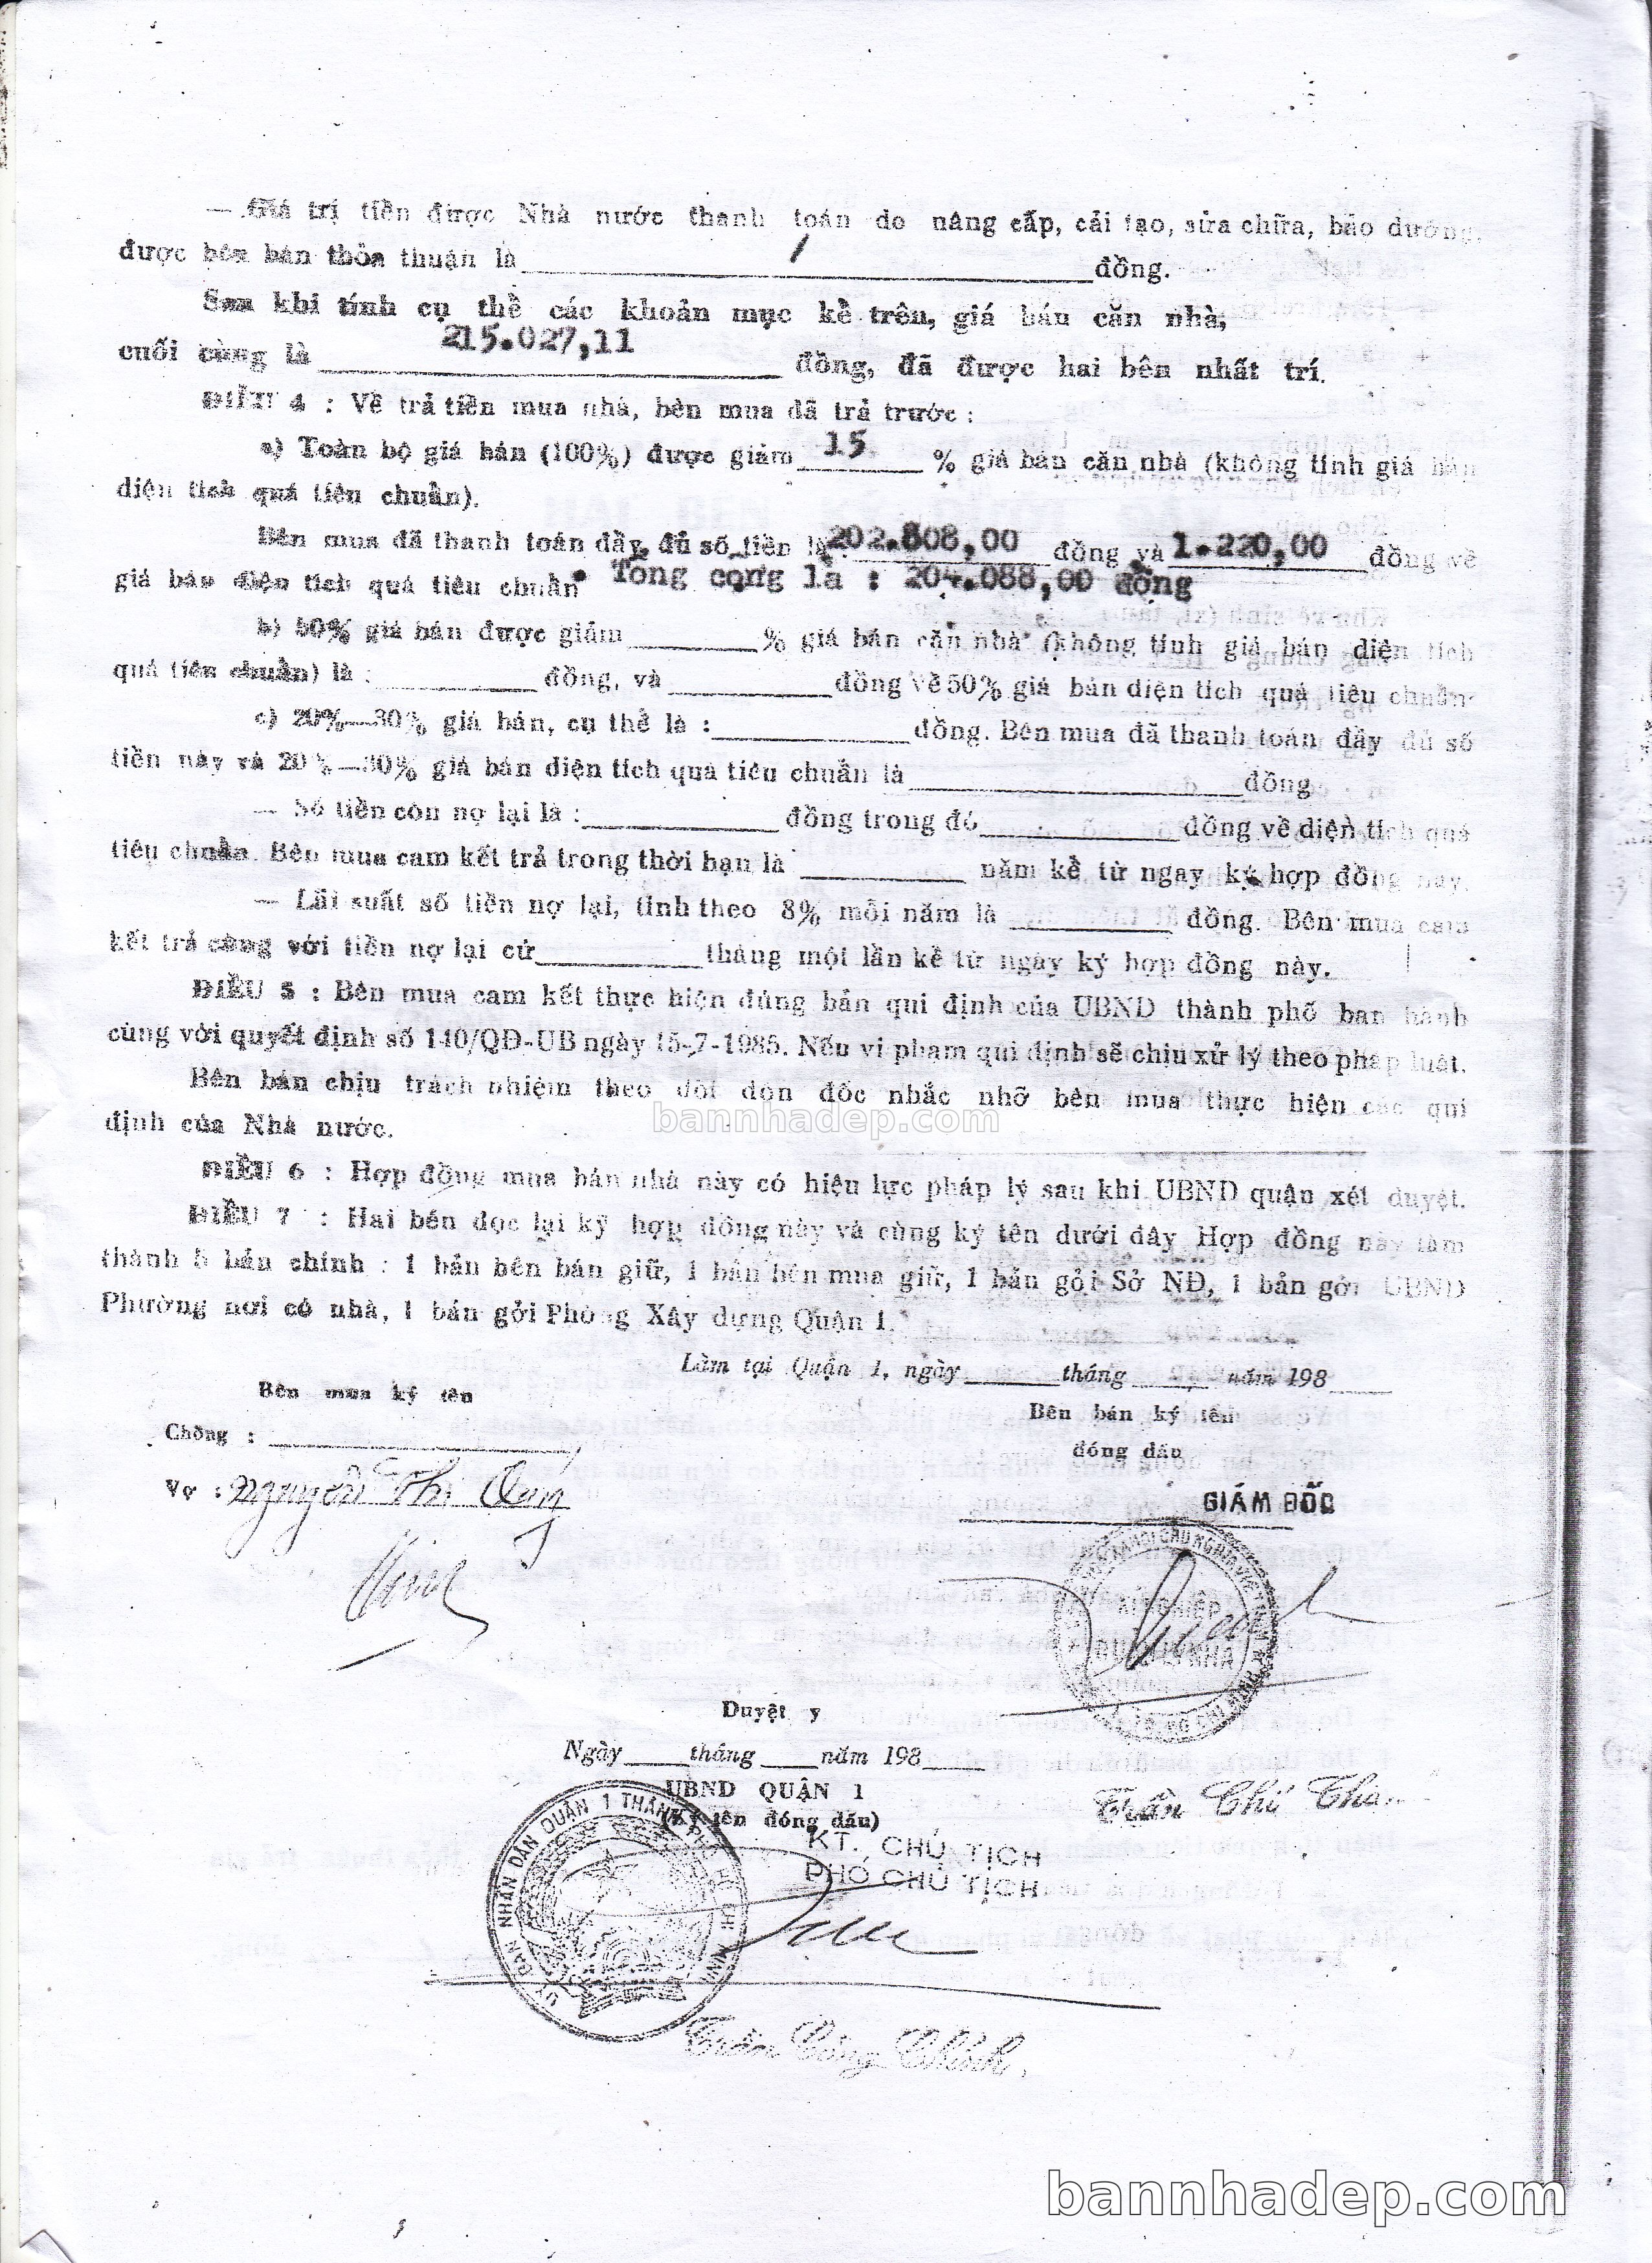 — Giá trị tiền được Nhà nước thanh toán do nâng cấp, cải tạo, sửa chữa, bảo dưỡng,
được bên bán thỏa thuận là / đồng.
Sau khi tính cụ thể các khoản mục kể trên, giá bán căn nhà,
cuối cùng là 215.027,11 đồng, đã được hai bên nhất trí.
ĐIỀU 4 : Về trả tiền mua nhà, bên mua đã trả trước :
a) Toàn bộ giá bán (100%) được giảm 15 % giá bán căn nhà (không tính giá bán
diện tích quá tiêu chuẩn).
Bên mua đã thanh toán đầy đủ số tiền là 202.808,00 đồng và 1.220,00 đồng về
giá bán diện tích quá tiêu chuẩn. Tổng cộng là : 204.088,00 đồng
b) 50% giá bán được giảm % giá bán căn nhà (không tính giá bán diện tích
quá tiêu chuẩn) là : đồng, và đồng về 50% giá bán diện tích quá tiêu chuẩn.
c) 20%—30% giá bán, cụ thể là : đồng. Bên mua đã thanh toán đầy đủ số
tiền này và 20%—30% giá bán diện tích quá tiêu chuẩn là đồng
— Số tiền còn nợ lại là : đồng trong đó đồng về diện tích quá
tiêu chuẩn. Bên mua cam kết trả trong thời hạn là năm kể từ ngày ký hợp đồng này.
— Lãi suất số tiền nợ lại, tính theo 8% mỗi năm là đồng. Bên mua cam
kết trả cùng với tiền nợ lại cứ tháng một lần kể từ ngày ký hợp đồng này.
ĐIỀU 5 : Bên mua cam kết thực hiện đúng bản qui định của UBND thành phố ban hành
cùng với quyết định số 140/QĐ-UB ngày 15-7-1985. Nếu vi phạm qui định sẽ chịu xử lý theo pháp luật.
Bên bán chịu trách nhiệm theo dõi đôn đốc nhắc nhỡ bên mua thực hiện các qui
định của Nhà nước.
bannhadep.com
ĐIỀU 6 : Hợp đồng mua bán nhà này có hiệu lực pháp lý sau khi UBND quận xét duyệt.
ĐIỀU 7 : Hai bên đọc lại kỹ hợp đồng này và cùng ký tên dưới đây Hợp đồng này làm
thành 5 bản chính : 1 bản bên bán giữ, 1 bản bên mua giữ, 1 bản gởi Sở NĐ, 1 bản gởi UBND
Phường nơi có nhà, 1 bản gởi Phòng Xây dựng Quận 1.
Làm tại Quận 1, ngày tháng năm 198
Bên mua ký tên
Bên bán ký tên
Chồng :
đóng dấu
Vợ : Nguyễn Thị
GIÁM ĐỐC
XÍ NGHIỆP
QUẢN LÝ NHÀ
Duyệt y
Ngày tháng năm 198
UBND QUẬN 1
Trần Chí
(Ký tên đóng dấu)
ỦY BAN NHÂN DÂN QUẬN 1 THÀNH PHỐ HỒ CHÍ MINH
KT. CHỦ TỊCH
PHÓ CHỦ TỊCH
Trần Công
bannhadep.com